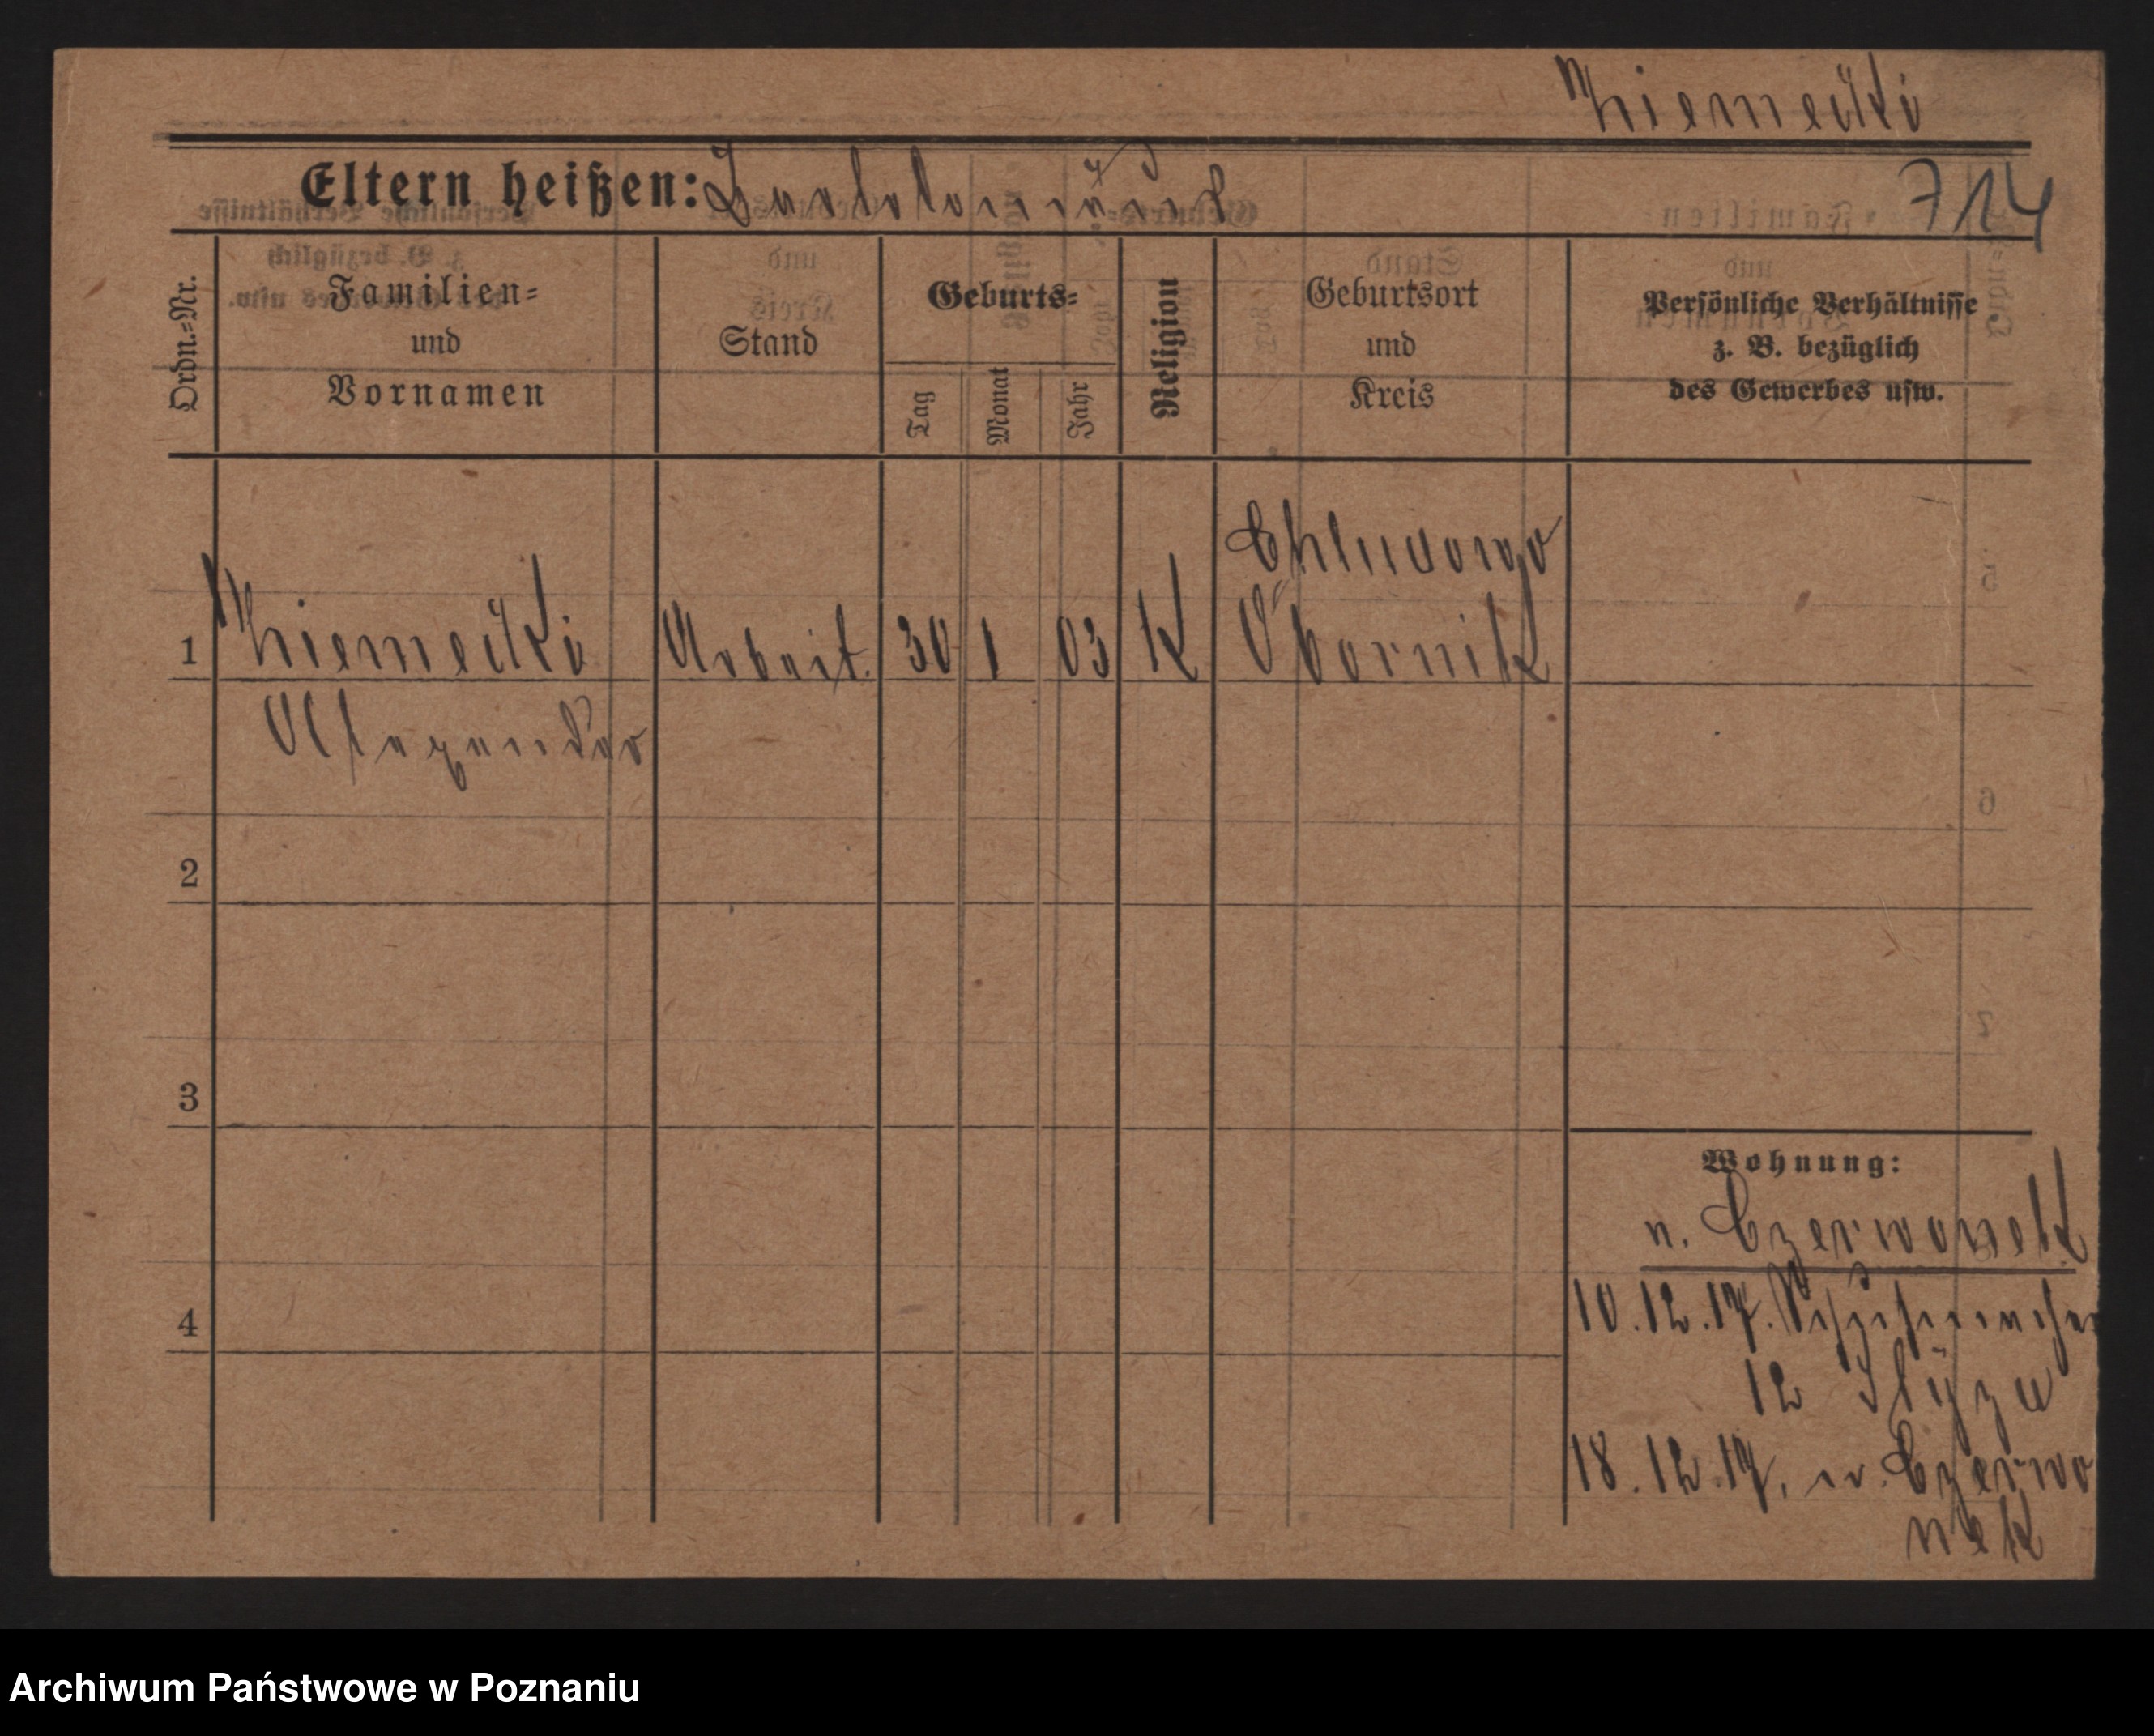 Niemecki
Eltern heißen:
714
Ordn.=Nr.
Familien=
und
Vornamen
Stand
Geburts=
Tag
Monat
Jahr
Religion
Geburtsort
und
Kreis
Persönliche Verhältnisse
z. B. bezüglich
des Gewerbes usw.
Chludowo
1 Niemecki Arbeit. 30 1 03 K Obornik
Alexander
2
3
4
Wohnung:
n. Czerwonek
10.12.17.
12
18.12.17. n. Czerwo
nek
Archiwum Państwowe w Poznaniu